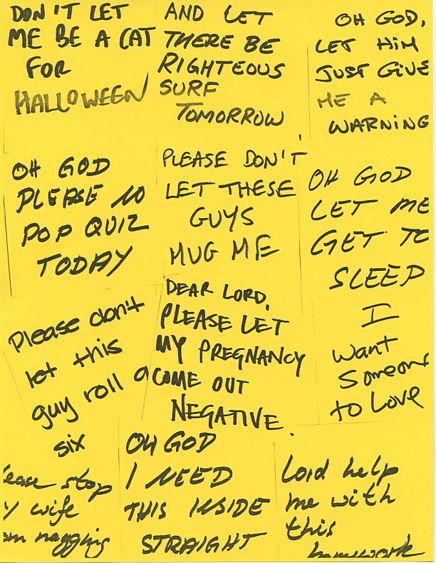 DON'T LET
ME BE A CAT
FOR
HALLOWEEN
AND LET
THERE BE
RIGHTEOUS
SURF
TOMORROW
OH GOD,
LET HIM
JUST GIVE
ME A
WARNING
OH GOD
PLEASE NO
POP QUIZ
TODAY
PLEASE DON'T
LET THESE
GUYS
MUG ME
OH GOD
LET ME
GET TO
SLEEP
Please don't
let this
guy roll a
six
DEAR LORD,
PLEASE LET
MY PREGNANCY
COME OUT
NEGATIVE.
I
want
Someone
to Love
ease stop
y wife
om nagging
OH GOD
I NEED
THIS INSIDE
STRAIGHT
Lord help
me with
this
homework